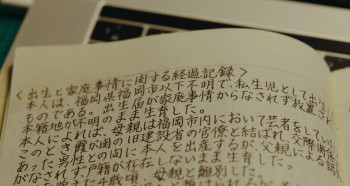 ＜出生と家庭事情に関する経過記録＞
本人は、福岡県福岡市以下不明で、私生児として出生
ものである。出生届が家庭事情からなされず放置され
本籍地が不明のまま生育した。
本人によれば、母親は福岡市内において芸者をしてい
このとき霞が関の旧建設省の官僚と結ばれ、交際関係
あった男性との間に本人を出産するが、父親による認
がなされず戸籍が存在しないまま生育した。
歳頃、母親と離別した。